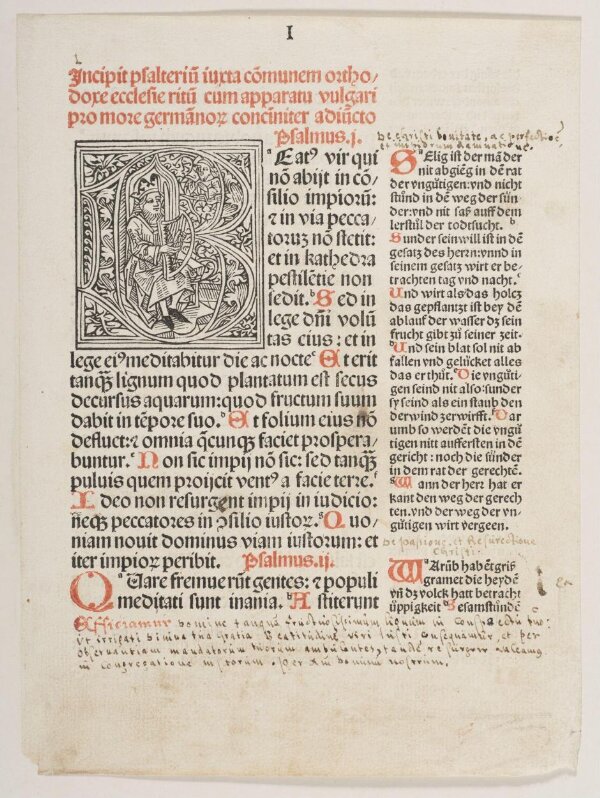 I
Incipit psalteriũ iuxta cõmunem ortho/
doxe ecclesie ritũ cum apparatu vulgari
pro more germãnoꝝ conciniter adiũcto
Psalmus.j.
ᵃEatꝰ vir qui
nõ abijt in cõ/
silio impiorũ:
⁊ in via pecca/
toruꝫ nõ stetit:
et in kathedra
pestilẽtie non
sedit.ᵇSed in
lege dñi volũ
tas eius: et in
lege eiꝰ meditabitur die ac nocte ᶜEt erit
tanqꝫ̃ lignum quod plantatum est secus
decursus aquarum: quod fructum suum
dabit in tẽpore suo.ᵈEt folium eius nõ
defluet: ⁊ omnia q̃cunqꝫ faciet prospera/
buntur.ᵉNon sic impij nõ sic: sed tanqꝫ̃
puluis quem proijcit ventꝰ a facie terre.ᶠ
Ideo non resurgent impij in iudicio:
neqꝫ peccatores in ꝯsilio iustoꝝ.ᵍQuo/
niam nouit dominus viam iustorum: et
iter impiorꝫ peribit. Psalmus.ij.
QᵃUare fremuerũt gentes: ⁊ populi
meditati sunt inania.ᵇAstiterunt
De Christi bonitate, ac perfectioe
et impiorum damnatione.
ᵃSElig ist der mã der
nit abgieng in dẽ rat
der vngütigen: vnd nicht
stũnd in dẽ weg der sün/
der: vnd nit saß auff dem
lerstůl der todsucht.ᵇ
Sunder sein will ist in dẽ
gesatz des herrn: vnnd in
seinem gesatz wirt er be/
trachten tag vnd nacht.ᶜ
Und wirt als das holcz
das gepflantzt ist bey dẽ
ablauf der wasser dz sein
frucht gibt zů seiner zeit.
ᵈUnd sein blat sol nit ab
fallen vnd gelücket alles
das er thůt.ᵉDie vngüti/
gen seind nit also: sunder
sy seind als ein staub den
der wind zerwirfft.ᶠDar
umb so werdẽt die vngü
tigen nit aufferstẽn in dẽ
gericht: noch die sünder
in dem rat der gerechtẽ.
ᵍWann der herr hat er
kant den weg der gerech
ten. vnd der weg der vn/
gütigen wirt vergeen.
De passione, et Resurectione
Christi.
WᵃArũb habẽt griß
gramet die heydẽ
vñ dz volck hatt betracht
üppigkeit ᵇDesamstũnde
Efficiamur domine tanquã fructuosissimum lignum in conspectu tuo:
ut irrigati divina tua gratia beatitudinem viri iusti consequamur, et per
observantiam mandatorum tuorum ambulantes, tande resurgere valeamus
in congregatione iustorum. per Xm dominum nostrum.